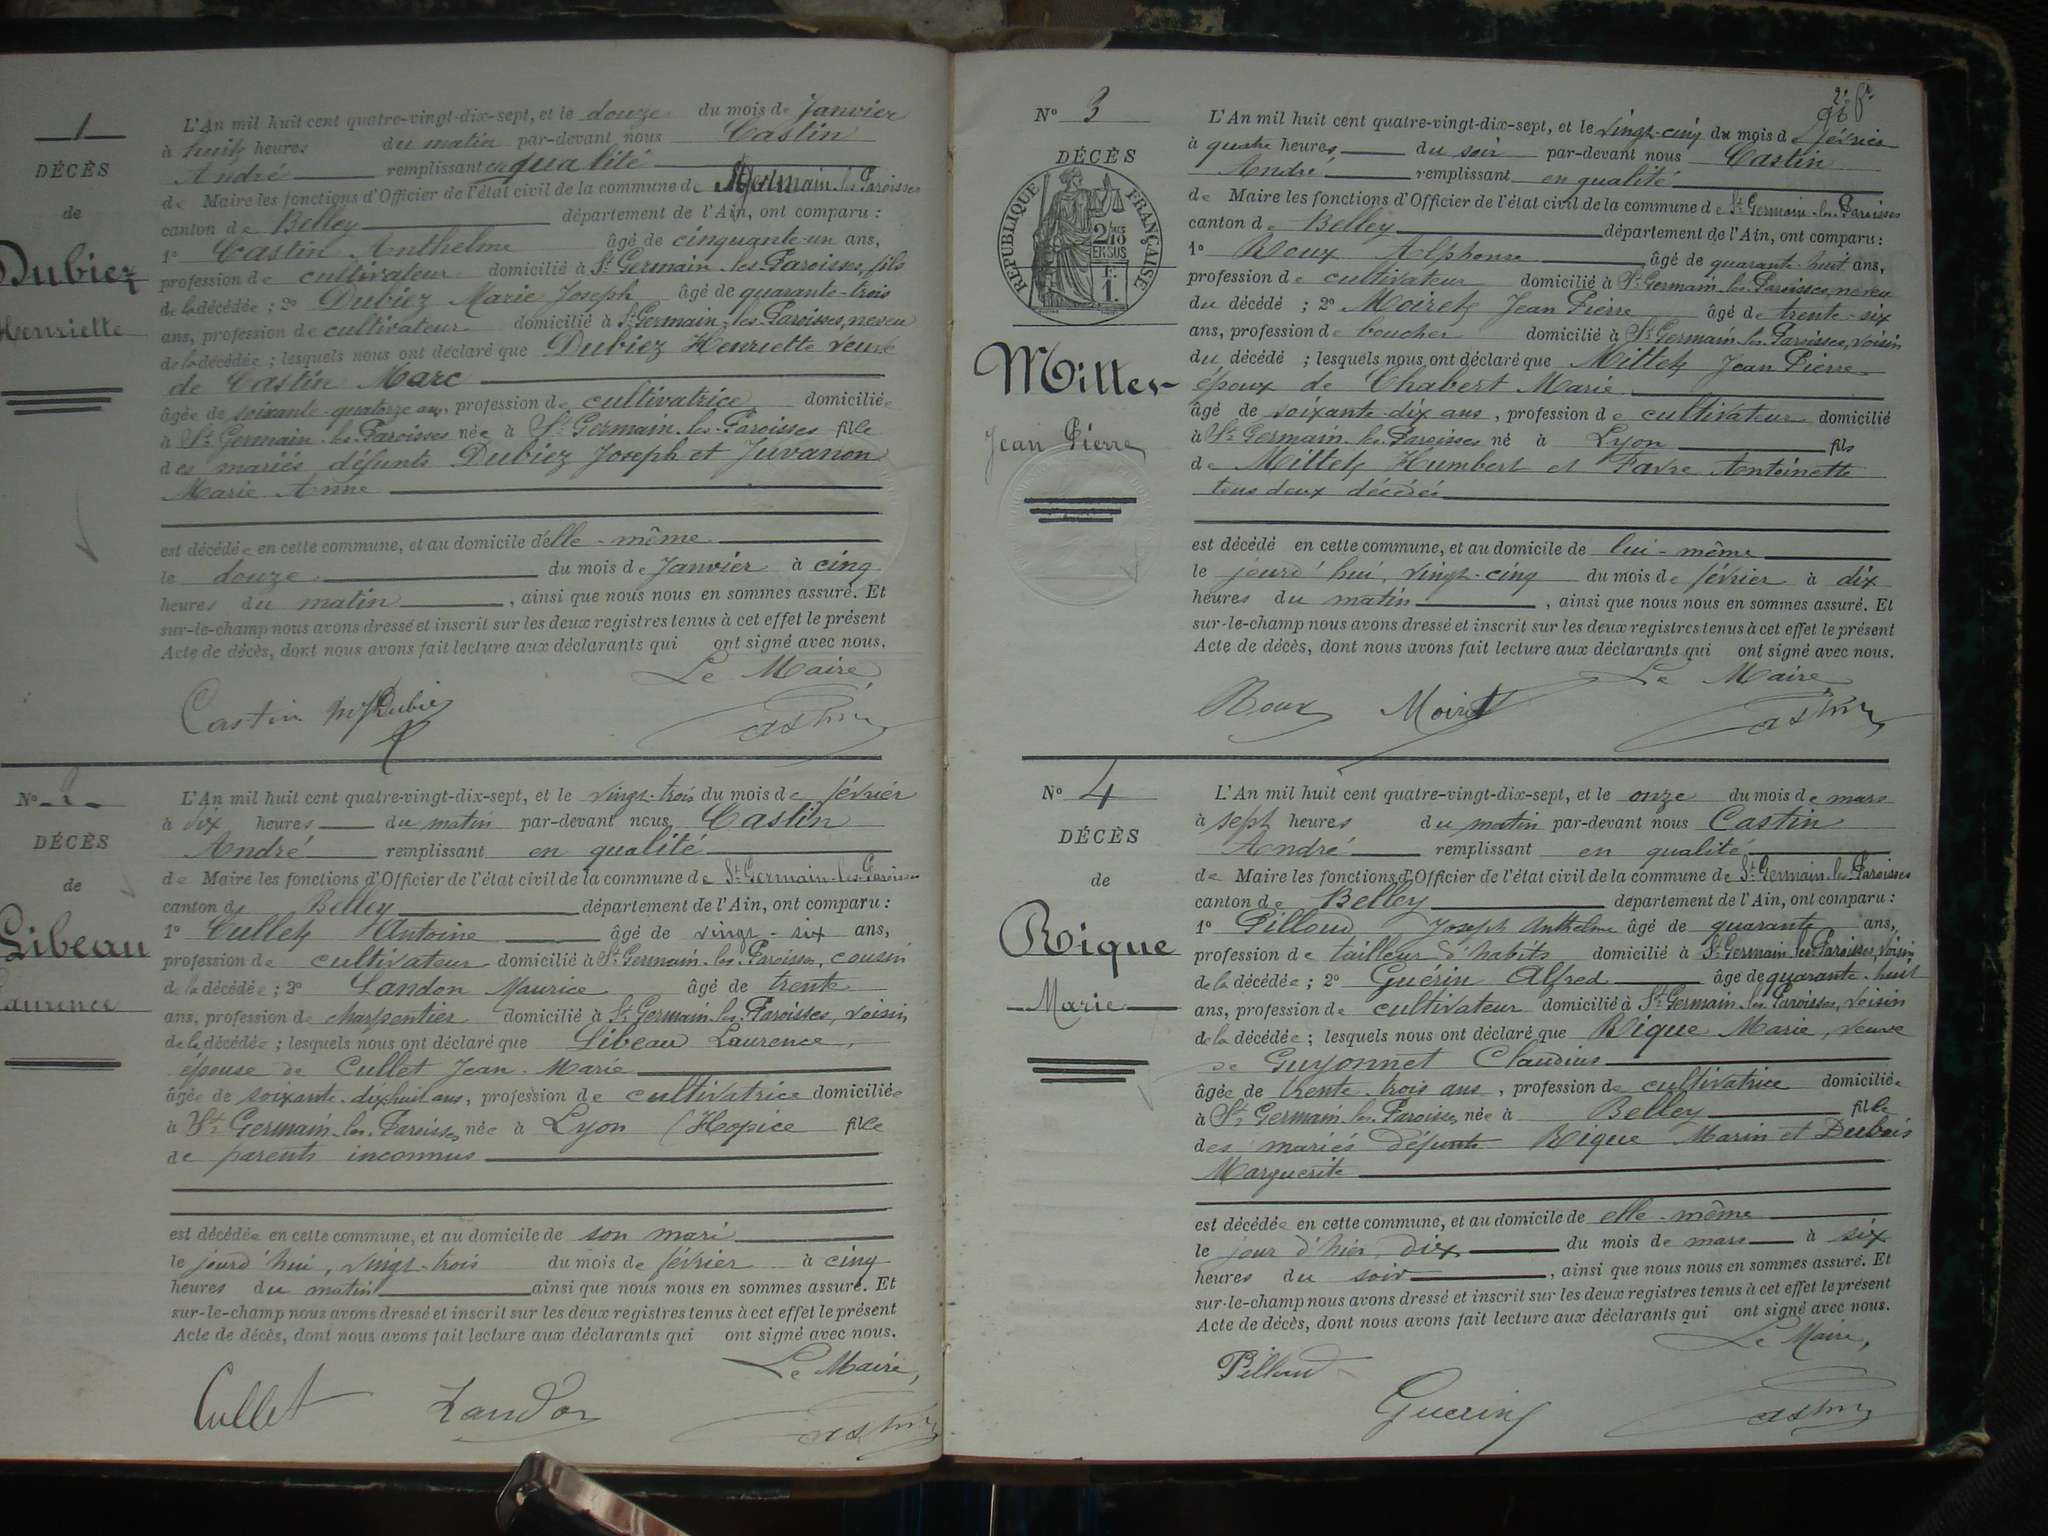 1
DÉCÈS
de
Dubiez
Henriette
L'An mil huit cent quatre-vingt-dix-sept, et le douze du mois de Janvier
à huit heures du matin par-devant nous Castin
André remplissant en qualité
de Maire les fonctions d'Officier de l'état civil de la commune de St Germain-les-Paroisses
canton de Belley département de l'Ain, ont comparu :
1º Castin Anthelme âgé de cinquante-un ans,
profession de cultivateur domicilié à St Germain-les-Paroisses, fils
de la décédée ; 2º Dubiez Marie Joseph âgé de quarante-trois
ans, profession de cultivateur domicilié à St Germain-les-Paroisses, neveu
de la décédée ; lesquels nous ont déclaré que Dubiez Henriette veuve
de Castin Marc
âgée de soixante-quatorze ans, profession de cultivatrice domiciliée
à St Germain-les-Paroisses née à St Germain-les-Paroisses fille
des mariés défunts Dubiez Joseph et Juvanon
Marie Anne
est décédée en cette commune, et au domicile d'elle-même
le douze du mois de Janvier à cinq
heures du matin, ainsi que nous nous en sommes assuré. Et
sur-le-champ nous avons dressé et inscrit sur les deux registres tenus à cet effet le présent
Acte de décès, dont nous avons fait lecture aux déclarants qui ont signé avec nous.
Le Maire
Castin Dubiez Castin
No 2
DÉCÈS
de
Libeau
Laurence
L'An mil huit cent quatre-vingt-dix-sept, et le vingt-trois du mois de février
à dix heures du matin par-devant nous Castin
André remplissant en qualité
de Maire les fonctions d'Officier de l'état civil de la commune de St Germain-les-Paroisses
canton de Belley département de l'Ain, ont comparu :
1º Cullet Antoine âgé de vingt-six ans,
profession de cultivateur domicilié à St Germain-les-Paroisses, cousin
de la décédée ; 2º Landon Maurice âgé de trente
ans, profession de charpentier domicilié à St Germain-les-Paroisses, voisin
de la décédée ; lesquels nous ont déclaré que Libeau Laurence,
épouse de Cullet Jean-Marie
âgée de soixante-dix huit ans, profession de cultivatrice domiciliée
à St Germain-les-Paroisses née à Lyon (Hospice fille
de parents inconnus
est décédée en cette commune, et au domicile de son mari
le jourd'hui, vingt-trois du mois de février à cinq
heures du matin ainsi que nous nous en sommes assuré. Et
sur-le-champ nous avons dressé et inscrit sur les deux registres tenus à cet effet le présent
Acte de décès, dont nous avons fait lecture aux déclarants qui ont signé avec nous.
Le Maire,
Cullet Landon Castin
No 3
DÉCÈS
RÉPUBLIQUE FRANÇAISE
Mittet
Jean Pierre
L'An mil huit cent quatre-vingt-dix-sept, et le vingt-cinq du mois de février
à quatre heures du soir par-devant nous Castin
André remplissant en qualité
de Maire les fonctions d'Officier de l'état civil de la commune de St Germain-les-Paroisses
canton de Belley département de l'Ain, ont comparu :
1º Roux Alphonse âgé de quarante-huit ans,
profession de cultivateur domicilié à St Germain-les-Paroisses, neveu
du décédé ; 2º Moiret Jean Pierre âgé de trente-six
ans, profession de boucher domicilié à St Germain-les-Paroisses, voisin
du décédé ; lesquels nous ont déclaré que Mittet Jean Pierre
époux de Chabert Marie
âgé de soixante-dix ans, profession de cultivateur domicilié
à St Germain-les-Paroisses né à Lyon fils
de Mittet Humbert et Favre Antoinette
tous deux décédés
est décédé en cette commune, et au domicile de lui-même
le jourd'hui, vingt-cinq du mois de février à dix
heures du matin, ainsi que nous nous en sommes assuré. Et
sur-le-champ nous avons dressé et inscrit sur les deux registres tenus à cet effet le présent
Acte de décès, dont nous avons fait lecture aux déclarants qui ont signé avec nous.
Le Maire
Roux Moiret Castin
No 4
DÉCÈS
de
Rique
Marie
L'An mil huit cent quatre-vingt-dix-sept, et le onze du mois de mars
à sept heures du matin par-devant nous Castin
André remplissant en qualité
de Maire les fonctions d'Officier de l'état civil de la commune de St Germain-les-Paroisses
canton de Belley département de l'Ain, ont comparu :
1º Pilloud Joseph Anthelme âgé de quarante ans,
profession de tailleur d'habits domicilié à St Germain-les-Paroisses, voisin
de la décédée ; 2º Guérin Alfred âgé de quarante-huit
ans, profession de cultivateur domicilié à St Germain-les-Paroisses, voisin
de la décédée ; lesquels nous ont déclaré que Rique Marie, veuve
de Guyonnet Claudius
âgée de trente-trois ans, profession de cultivatrice domiciliée
à St Germain-les-Paroisses, née à Belley fille
des mariés défunts Rique Marin et Dubois
Marguerite
est décédée en cette commune, et au domicile de elle-même
le jour d'hier, diex du mois de mars à six
heures du soir, ainsi que nous nous en sommes assuré. Et
sur-le-champ nous avons dressé et inscrit sur les deux registres tenus à cet effet le présent
Acte de décès, dont nous avons fait lecture aux déclarants qui ont signé avec nous.
Le Maire,
Pilloud
Guerin Castin